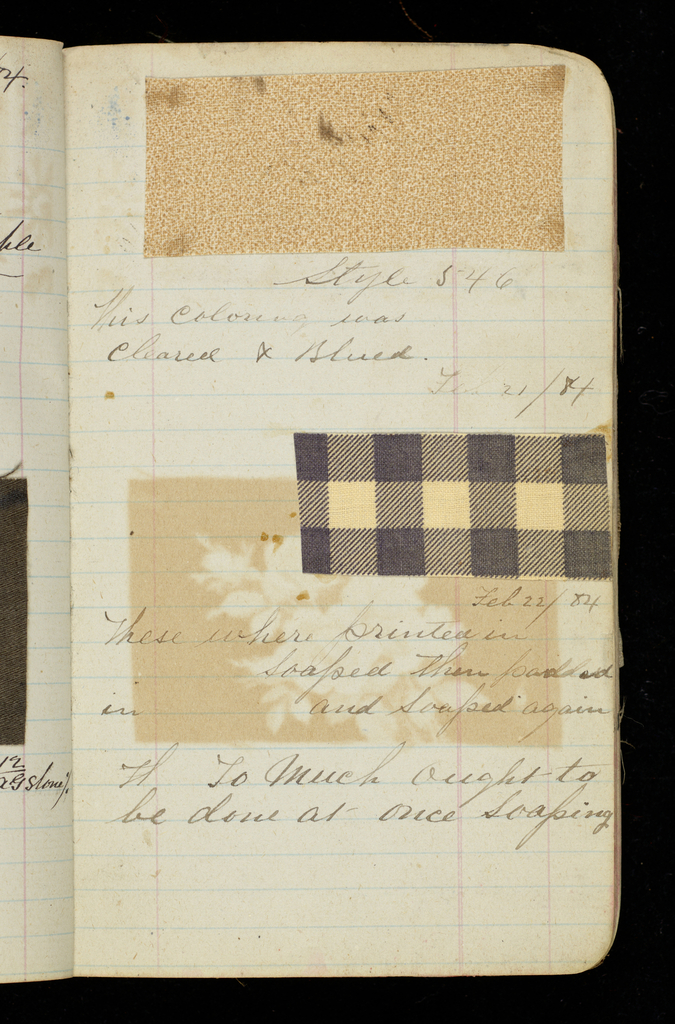 Style 546
This Coloring was
Cleared & Blued.
Feb 21/84
Feb 22/84
These where printed in
Soaped then padded
in and Soaped again
To Much Ought to
be done at once Soaping